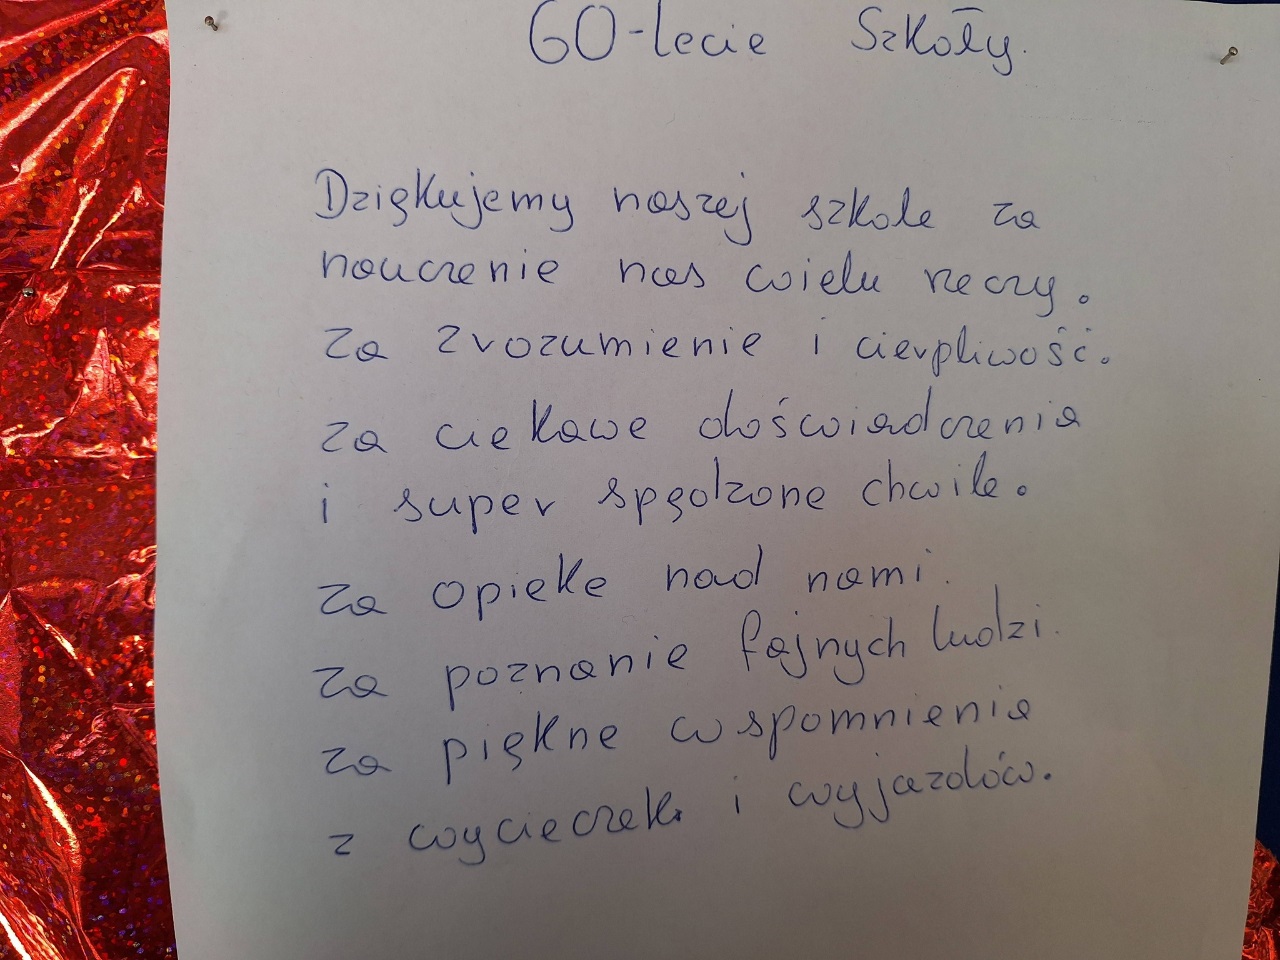 60-lecie Szkoły.
Dziękujemy naszej szkole za
nauczenie nas wielu rzeczy.
za zrozumienie i cierpliwość.
za ciekawe doświadczenia
i super spędzone chwile.
za opiekę nad nami.
za poznanie fajnych ludzi.
za piękne wspomnienia
z wycieczek i wyjazdów.